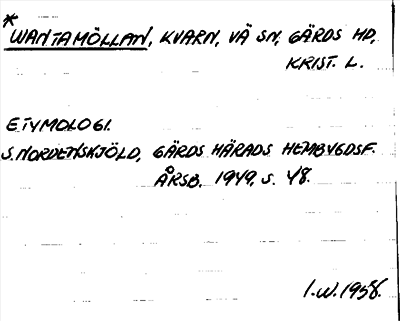 *
WANTAMÖLLAN, KVARN, VÄ SN, GÄRDS HD,
KRIST. L.
ETYMOLOGI.
S. NORDENSKJÖLD, GÄRDS HÄRADS HEMBYGDSF.
ÅRSB. 1949, S. 48.
I.W. 1958.